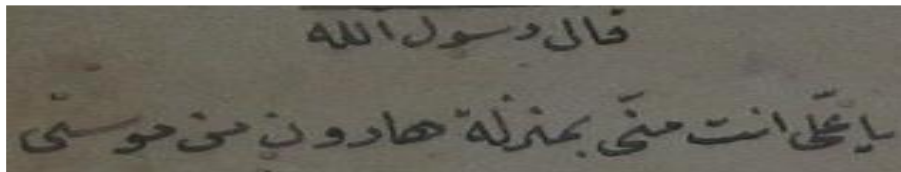 قال رسول الله
يا علی انت منی بمنزلة هارون من موسی